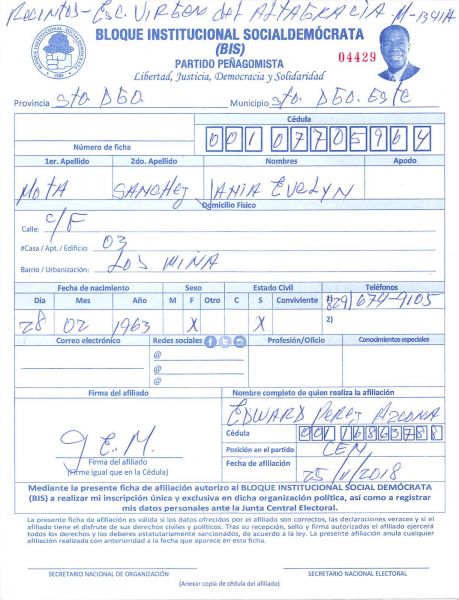 Recintos - Esc. Virgen del Altagracia M-1341A
BLOQUE INSTITUCIONAL SOCIALDEMÓCRATA
(BIS)
PARTIDO PEÑAGOMISTA
Libertad, Justicia, Democracia y Solidaridad
04429
Provincia Sto. DGO. Municipio Sto. DGO. Este
Cédula
Número de ficha 001 0770596 4
1er. Apellido 2do. Apellido Nombres Apodo
Mota Sanchez Iania Evelyn
Domicilio Físico
Calle: C/F
#Casa / Apt. / Edificio: 03
Barrio / Urbanización: Los Mina
Fecha de nacimiento Sexo Estado Civil Teléfonos
Día Mes Año M F Otro C S Conviviente 1) 829) 674-9105
28 02 1963 X X 2)
Correo electrónico Redes sociales Profesión/Oficio Conocimientos especiales
@
@
@
Firma del afiliado Nombre completo de quien realiza la afiliación
Edward Perez Azcona
Cédula 001 1686378 8
Posición en el partido CEN
Fecha de afiliación 25/11/2018
J E. M.
Firma del afiliado
(Firme igual que en la Cédula)
Mediante la presente ficha de afiliación autorizo al BLOQUE INSTITUCIONAL SOCIAL DEMÓCRATA
(BIS) a realizar mi inscripción única y exclusiva en dicha organización política, así como a registrar
mis datos personales ante la Junta Central Electoral.
La presente ficha de afiliación es válida si los datos ofrecidos por el afiliado son correctos, las declaraciones veraces y si el
afiliado tiene el disfrute de sus derechos civiles y políticos. Tras su recepción, sello y firma autorizadas el afiliado ejercerá
todos los derechos y los deberes estatutariamente sancionados, de acuerdo a la ley. La presente afiliación anula cualquier
afiliación realizada con anterioridad a la fecha que aparece en esta ficha.
SECRETARIO NACIONAL DE ORGANIZACIÓN SECRETARIO NACIONAL ELECTORAL
(Anexar copia de cédula del afiliado)